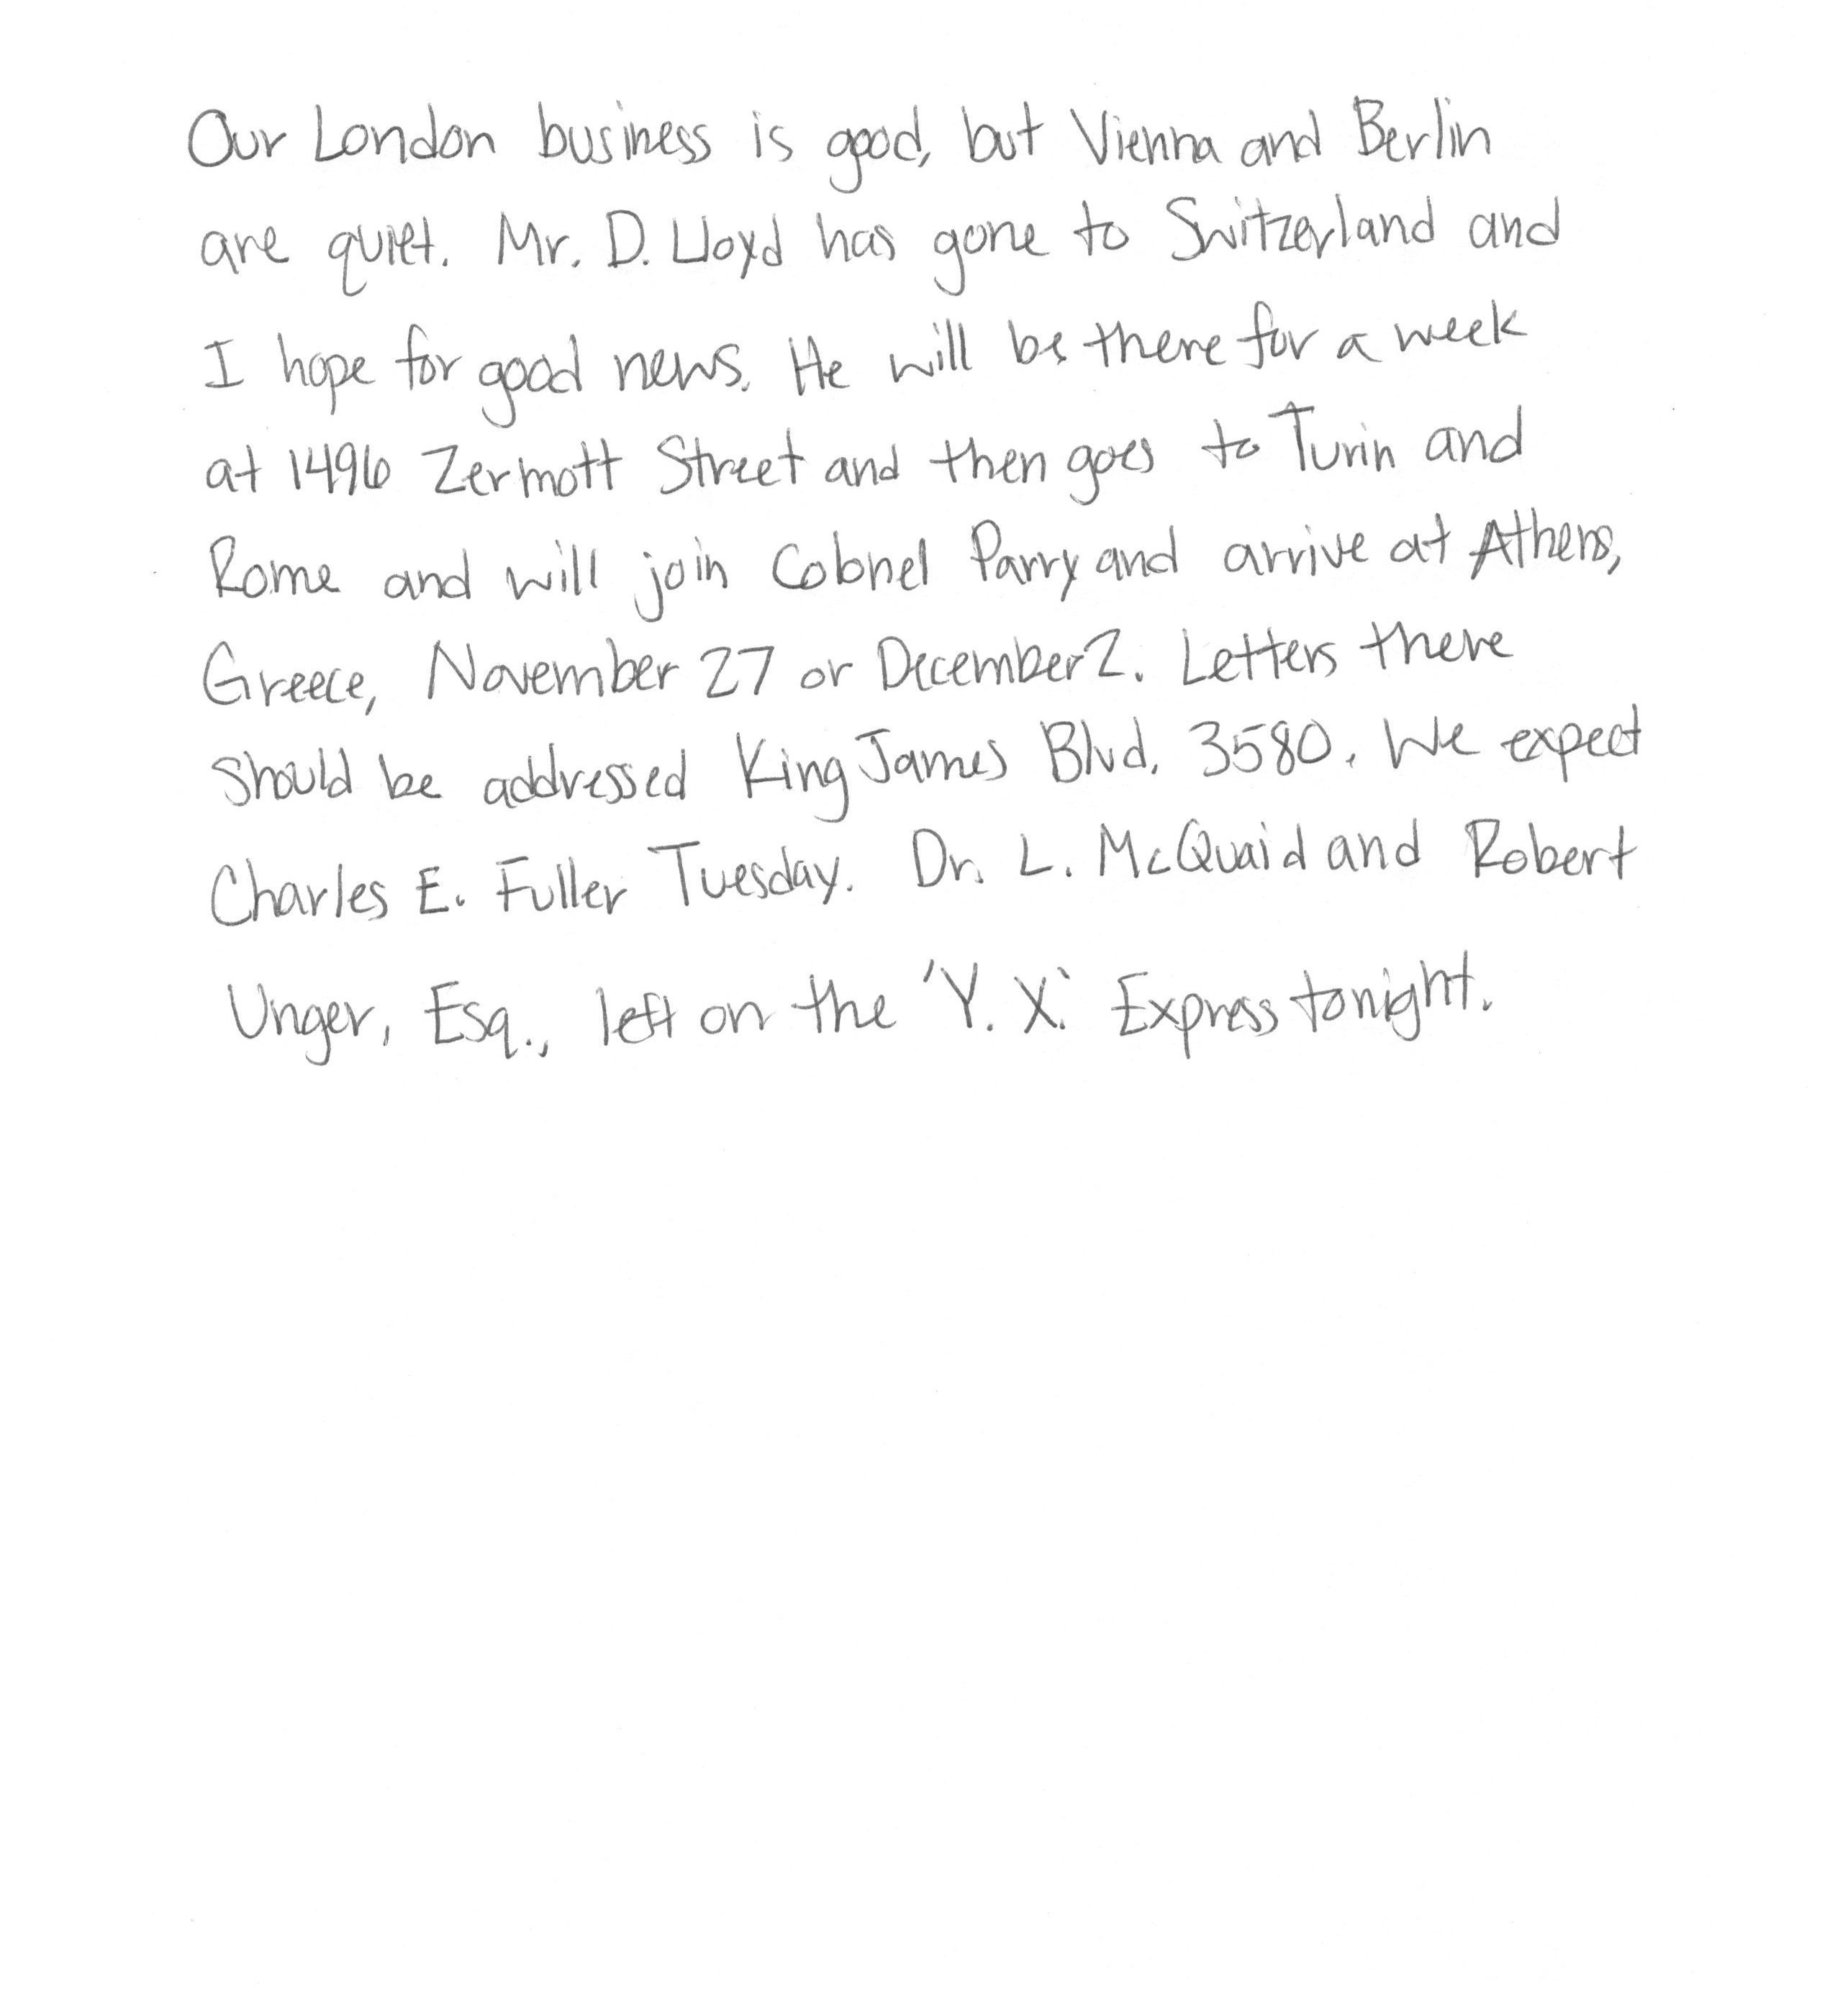 Our London business is good, but Vienna and Berlin
are quiet. Mr. D. Lloyd has gone to Switzerland and
I hope for good news. He will be there for a week
at 1496 Zermott Street and then goes to Turin and
Rome and will join Colonel Parry and arrive at Athens,
Greece, November 27 or December 2. Letters there
should be addressed King James Blvd. 3580. We expect
Charles E. Fuller Tuesday. Dr. L. McQuaid and Robert
Unger, Esq., left on the 'Y. X.' Express tonight.